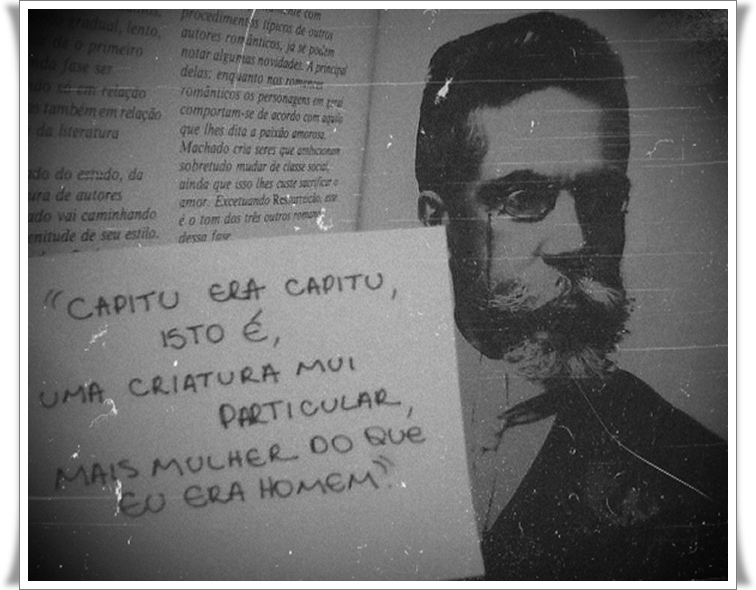 gradual, lento,
o primeiro
fase ser
só em relação
também em relação
da literatura
do do estudo, da
ura de autores
ado vai caminhando
enitude de seu estilo.
com
procedimentos típicos de outros
autores românticos, já se podem
notar algumas novidades. A principal
delas: enquanto nos romances
românticos os personagens em geral
comportam-se de acordo com aquilo
que lhes dita a paixão amorosa,
Machado cria seres que ambicionam
sobretudo mudar de classe social,
ainda que isso lhes custe sacrificar o
amor. Excetuando Ressurreição, este
é o tom dos três outros romances
dessa fase
"CAPITU ERA CAPITU,
ISTO É,
UMA CRIATURA MUI
PARTICULAR,
MAIS MULHER DO QUE
EU ERA HOMEM".